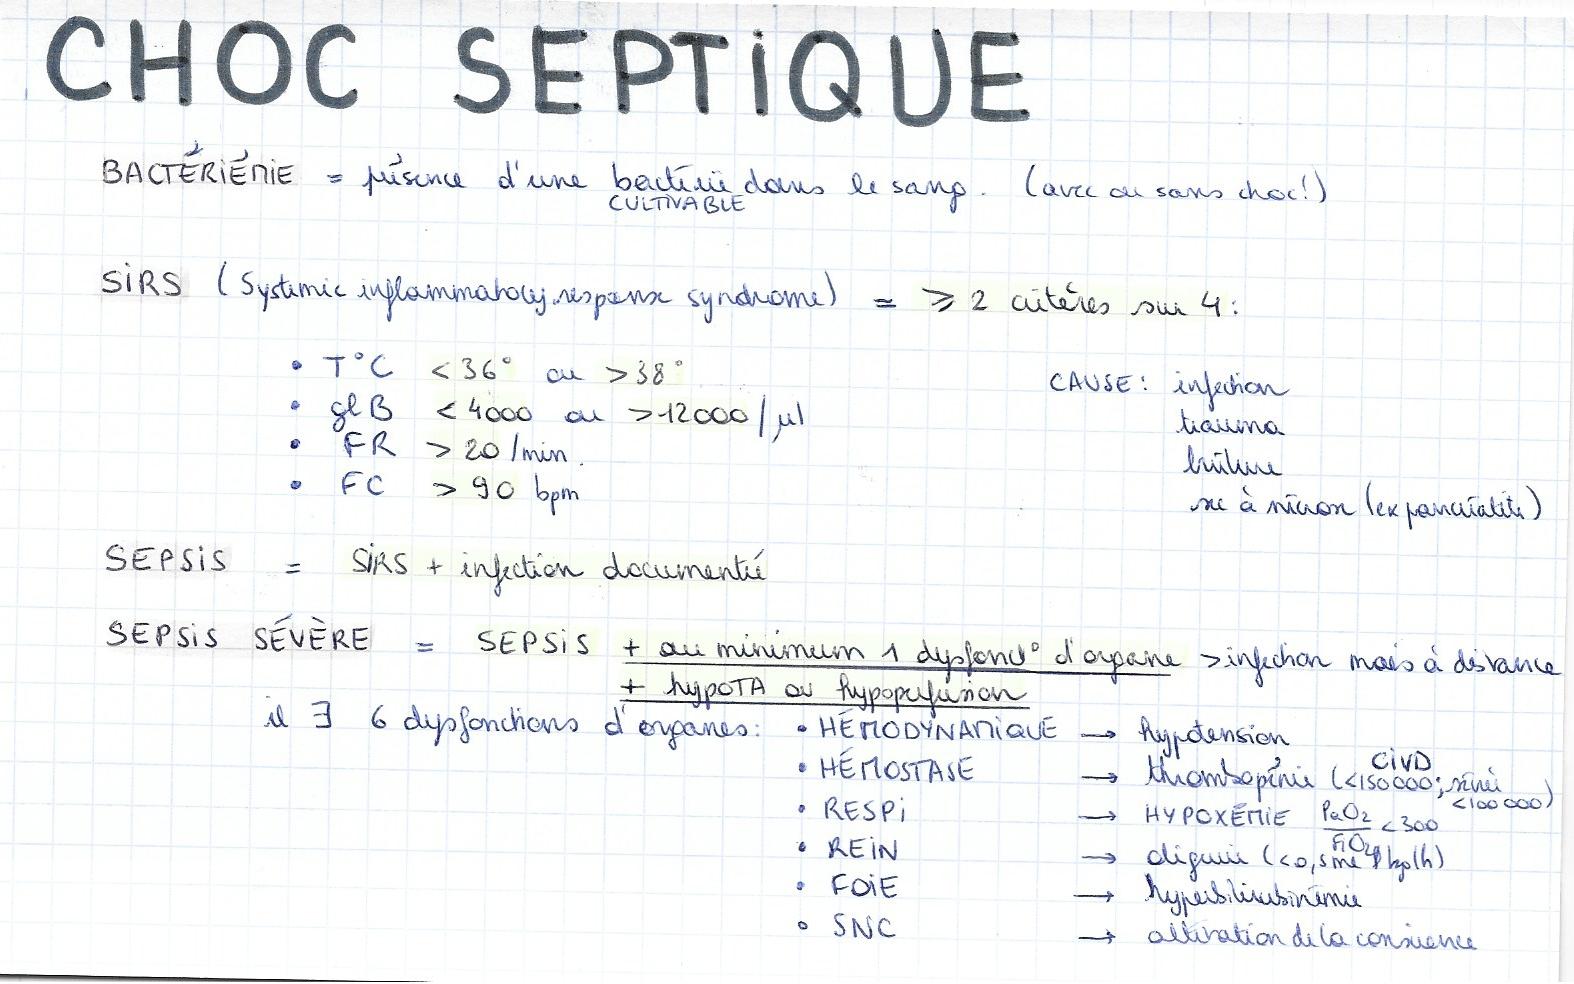 CHOC SEPTIQUE
BACTÉRIÉMIE = présence d'une bactérie dans le sang. (avec ou sans choc!)
CULTIVABLE
SIRS (Systemic inflammatory response syndrome) = ⩾ 2 critères sur 4 :
• T°C <36° ou >38°
• glB <4000 ou >12000/µl
• FR >20/min.
• FC > 90 bpm
CAUSE : infection
trauma
brûlure
sec à nécrose (ex pancréatite)
SEPSIS = SIRS + infection documentée
SEPSIS SÉVÈRE = SEPSIS + au minimum 1 dysfonct° d'organe > infection mais à distance
+ hypoTA ou hypoperfusion
il ∃ 6 dysfonctions d'organes : • HÉMODYNAMIQUE → hypotension
• HÉMOSTASE → thrombopénie (<150000; CIVD sévère <100000)
• RESPI → HYPOXÉMIE PaO2/FiO2 <300
• REIN → oligurie (<0,5ml/kg/h)
• FOIE → hyperbilirubinémie
• SNC → altération de la conscience